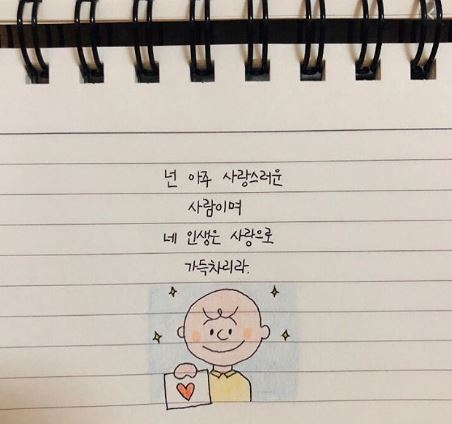 넌 아주 사랑스러운
사람이며
네 인생은 사랑으로
가득차리라.